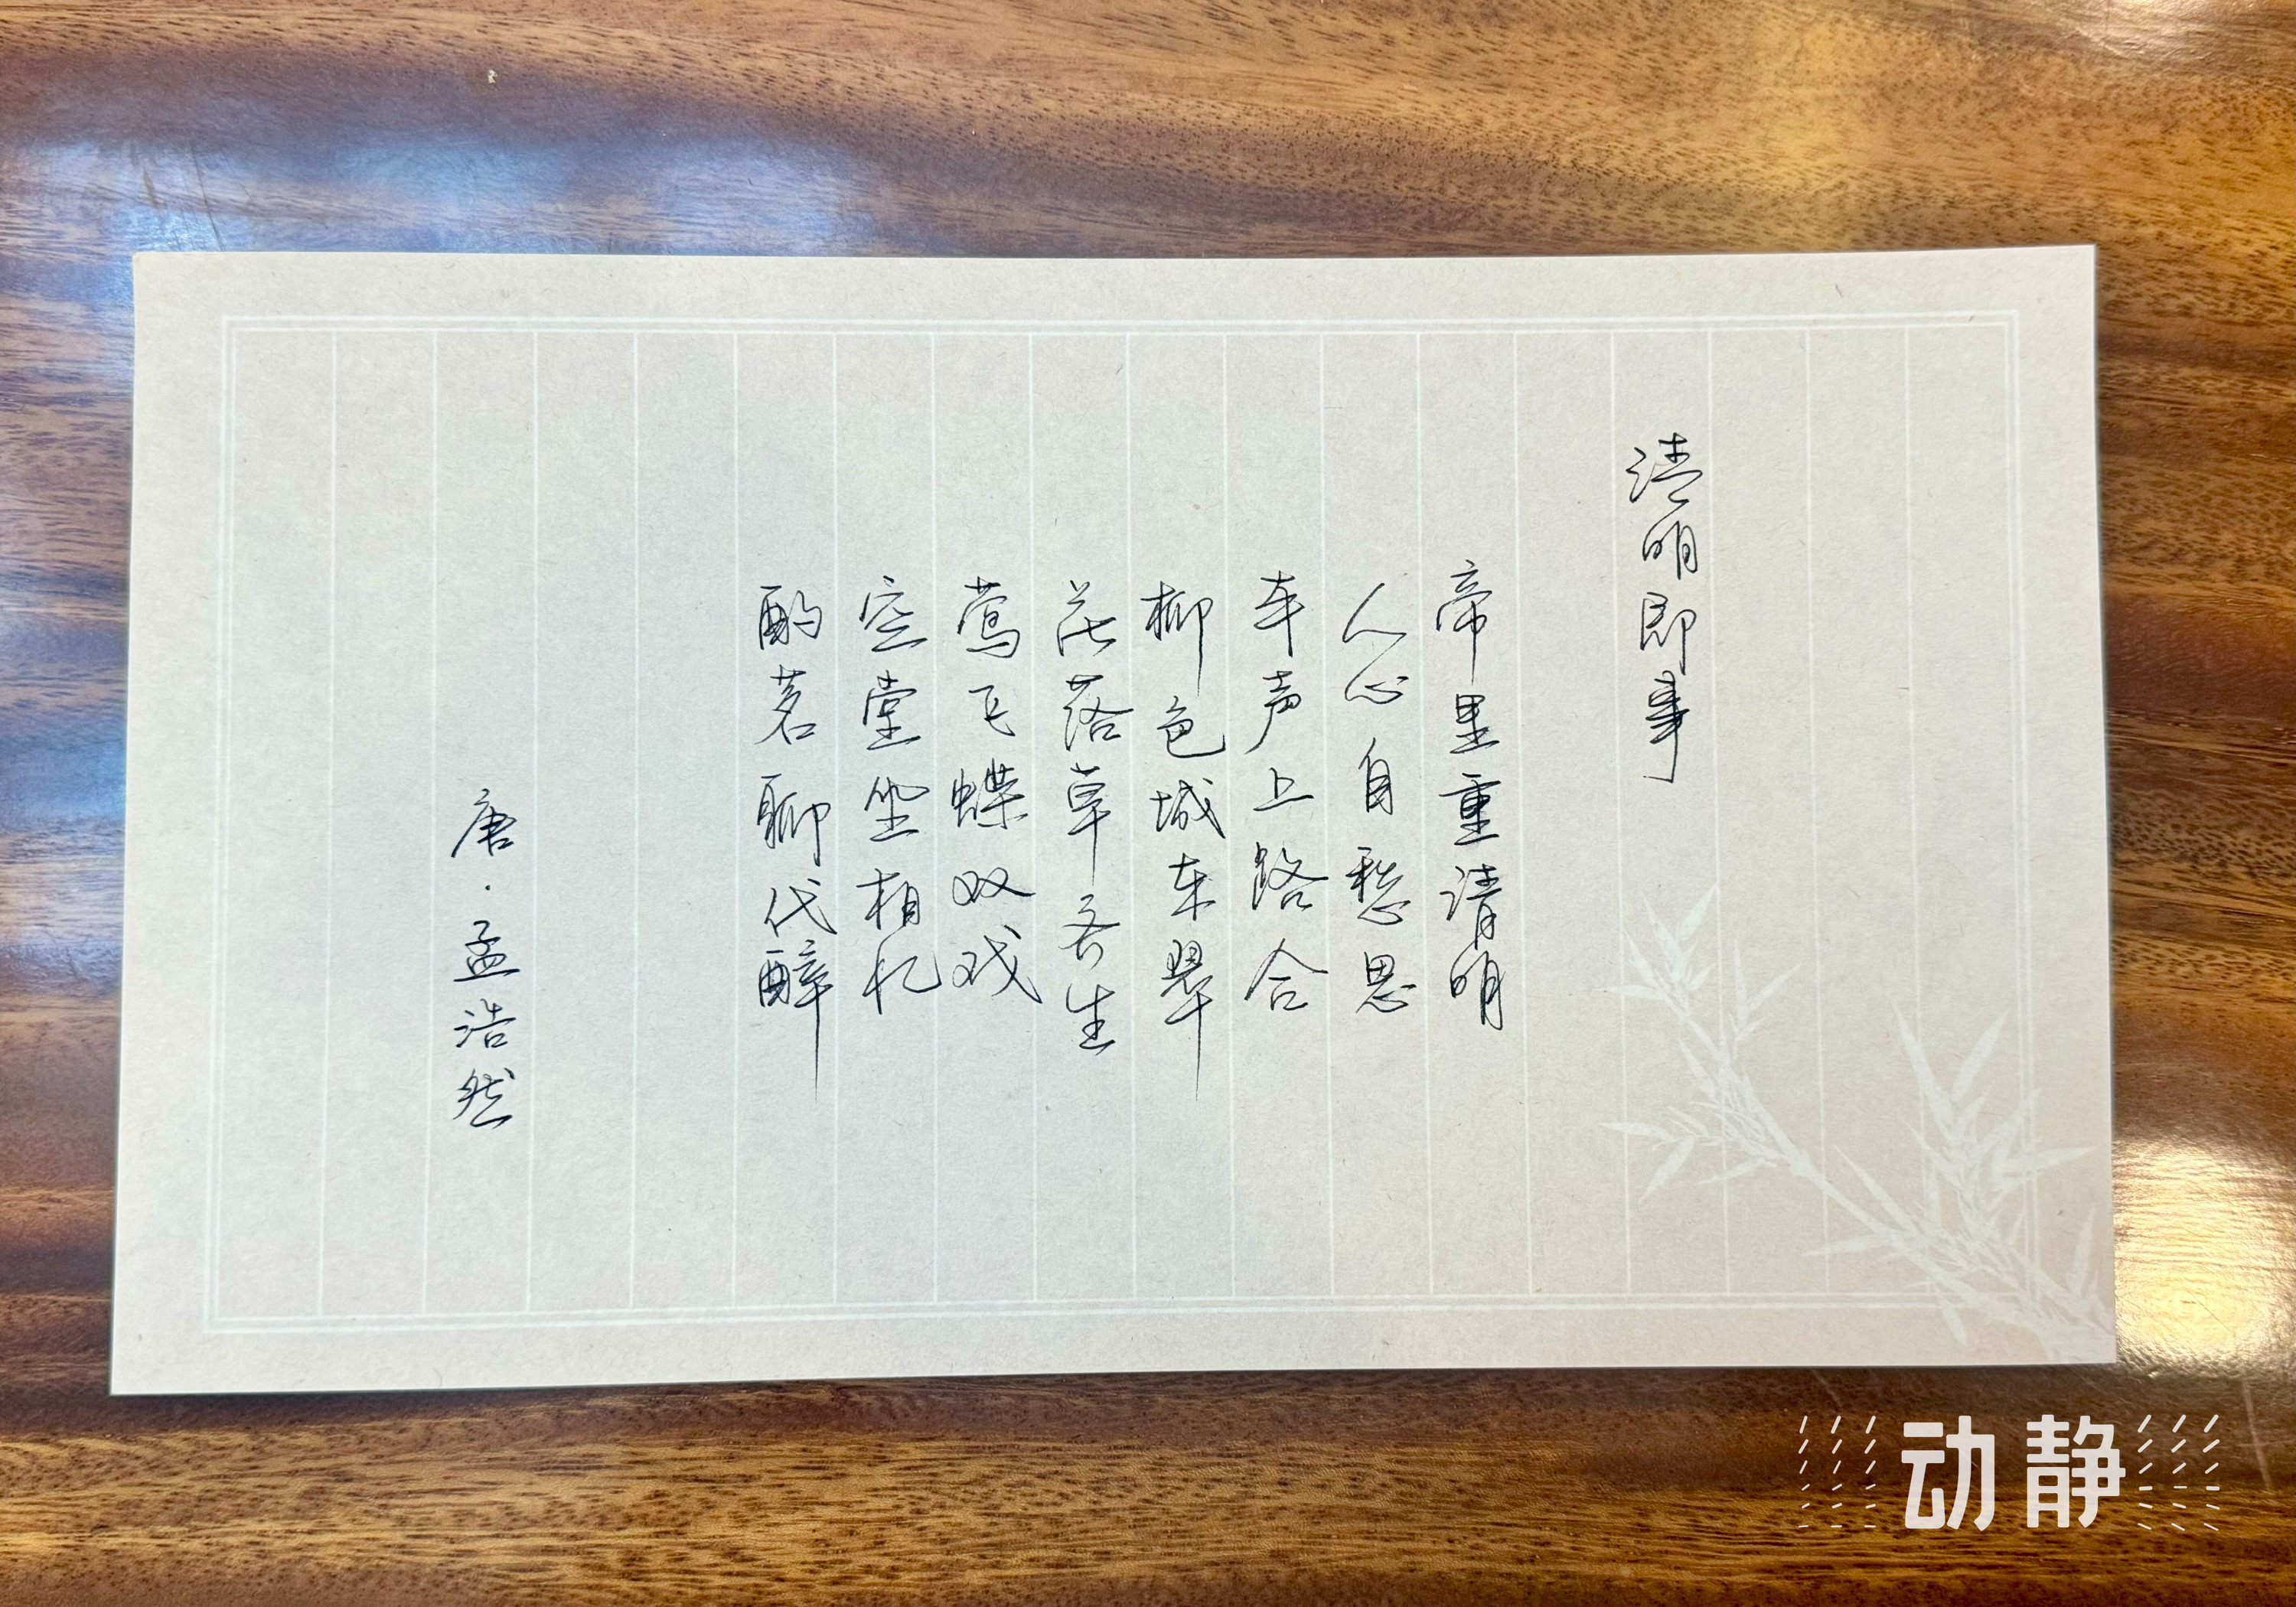 清明即事
帝里重清明
人心自愁思
车声上路合
柳色城东翠
花落草齐生
莺飞蝶双戏
空堂坐相忆
酌茗聊代醉
唐·孟浩然
动静